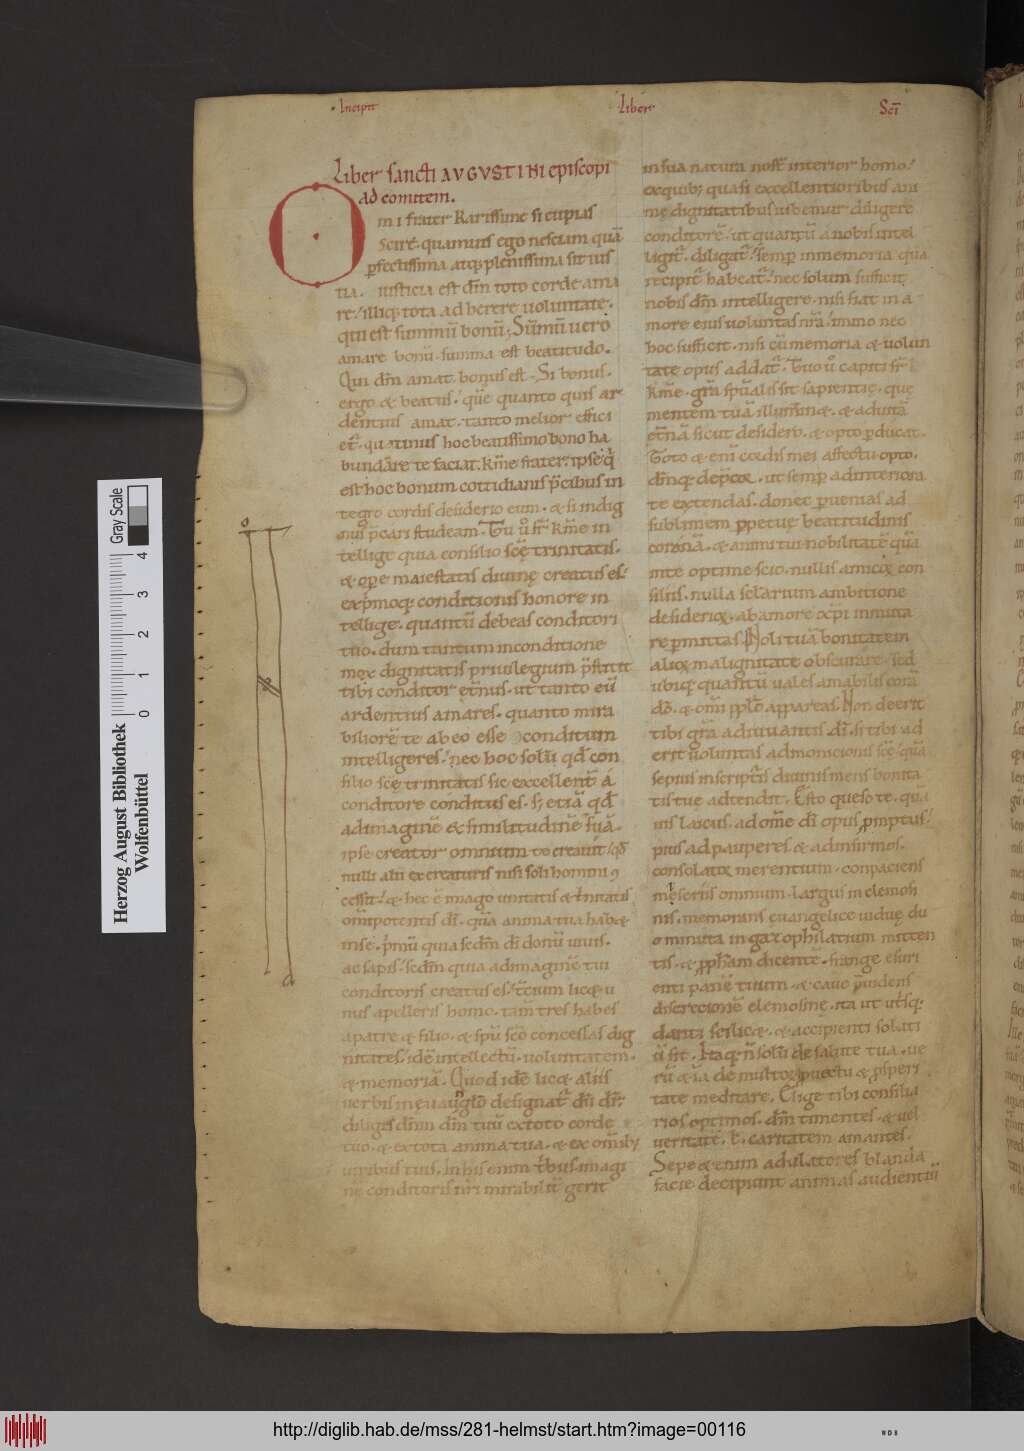 Incipit Liber Sc̄i
Liber sancti AVGVSTINI episcopi
ad comitem.
O mi frater karissime si cupias
scire. quamuis ego nesciam quā
p̄fectissima atq; plenissima sit ius
titia. iusticia est dm̄ toto corde ama
re. illiq; tota adherere uoluntate.
qui est summū bonū. Sūmū uero
amare bonū. summa est beatitudo.
Qui dm̄ amat. bonus est. Si bonus.
ergo & beatus. quē quanto quis ar
dentius amat. tanto melior effici
et̄. quatinus hoc beatissimo bono ha
bundare te faciat. km̄e frater. ipse q̄
est hoc bonum cottidianis p̄cibus in
tegro cordis desiderio eum. & si indig
nus p̄cari studeam. Tu ů fr̄ km̄e in
tellige quia consilio sc̄ę trinitatis.
& ope maiestatis diuinę creatus es.
ex p̄moq; conditionis honore in
tellige. quantū debeas conditori
tuo. dum tantum in conditione
mox dignitatis priuilegium p̄stitit
tibi conditor et̄nus. ut tanto eū
ardentius amares. quanto mira
biliorē te ab eo esse conditum
intelligeres. nec hoc solū qd̄ con
silio sc̄ę trinitatis sic excellent̄ a
conditore conditus es. s; etiā qd̄
ad imaginē & similitudinē suā.
ipse creator omnium te creauit. qd̄
nulli alii ex creaturis nisi soli homini 9
cessit. & hec ē imago unitatis & t̄nitatis
om̄ipotentis di. quā anima tua hab&
in se. p̄mū quia scdm̄ di donū uiuis.
ac sapis. scdm̄ quia ad imaginē tui
conditoris creatus es. t̄cium lic& u
nus apelleris homo. tam̄ tres habes
a patre & filio. & sp̄u sc̄o concessas dig
nitates. idē intellectū. uoluntatem.
& memoriā. Quod idē lic& aliis
uerbis in euangl̄o designat̄ dn̄i di.
diligis dn̄m dm̄ tuū ex toto corde
tuo. & ex tota anima tua. & ex om̄ib;
uiribus tuis. In his enim t̄bus imagi
nē conditoris tui mirabilit̄ gerit
in sua natura nost̄ interior homo.
ex quib; quasi excellentioribus ani
mę dignitatibus iubemur diligere
conditorē. ut quantū a nobis intel
ligit̄. diligat̄. semp in memoria quā
recipit̄ habeat̄. nec solum sufficit
nobis dm̄ intelligere. nisi fiat in a
more eius uoluntas nr̄a. immo nec
hoc sufficit. nisi cū memoria & uolun
tate opus addat̄. Tuo ů capiti fr̄
km̄e. gr̄a sp̄ualis sit sapientię. quę
mentem tuā illumin&. & ad uitā
et̄nā sicut desidero. & opto p̄ducat.
Toto & eni cordis mei affectu opto.
dm̄q; dep̄cor. ut semp ad interiora
te extendas. donec puenias ad
sublimem ppetuę beatitudinis
coronā. & animi tui nobilitatē quā
in te optime scio. nullis amicox con
siliis. nulla sclarium ambitione
desideriox. ab amore xp̄i inmuta
re pmittas. Noli tuā bonitatem
aliox malignitate obscurare. sed
ubiq; quantū uales amabilis corā
dō. & om̄i ppl̄o appareas. Non deerit
tibi gr̄a adiuuantis di. si tibi ad
erit uoluntas admonicionis sc̄ę. quā
sepius in scriptis diuinis mens bonita
tis tue adtendit. Esto queso te. quā
uis laicus. ad ome di opus pmptus.
pius ad pauperes. & ad infirmos.
consolator merentium. conpaciens
miseriis omnium. largus in elemosi
nis. memorans euangelice uiduę du
o minuta in gazophilatium mitten
tis. & ppham dicentē. frange esuri
enti panē tuum. & caue p̄uidens
discrecionē elemosine. ita ut ut̄sq;
danti scilic&. & accipienti solati
ū sit. Itaq; n̄ solū de salute tua. ue
rū & iā de multox puectu & psperi
tate meditare. Elige tibi consilia
rios optimos. dm̄ timentes. & uel
ueritatē. ł. caritatem amantes.
Sepe & enim adulatores blanda
facie decipiunt animas audientiū
Herzog August Bibliothek
Wolfenbüttel
0 1 2 3 4
Gray Scale
http://diglib.hab.de/mss/281-helmst/start.htm?image=00116
WDB